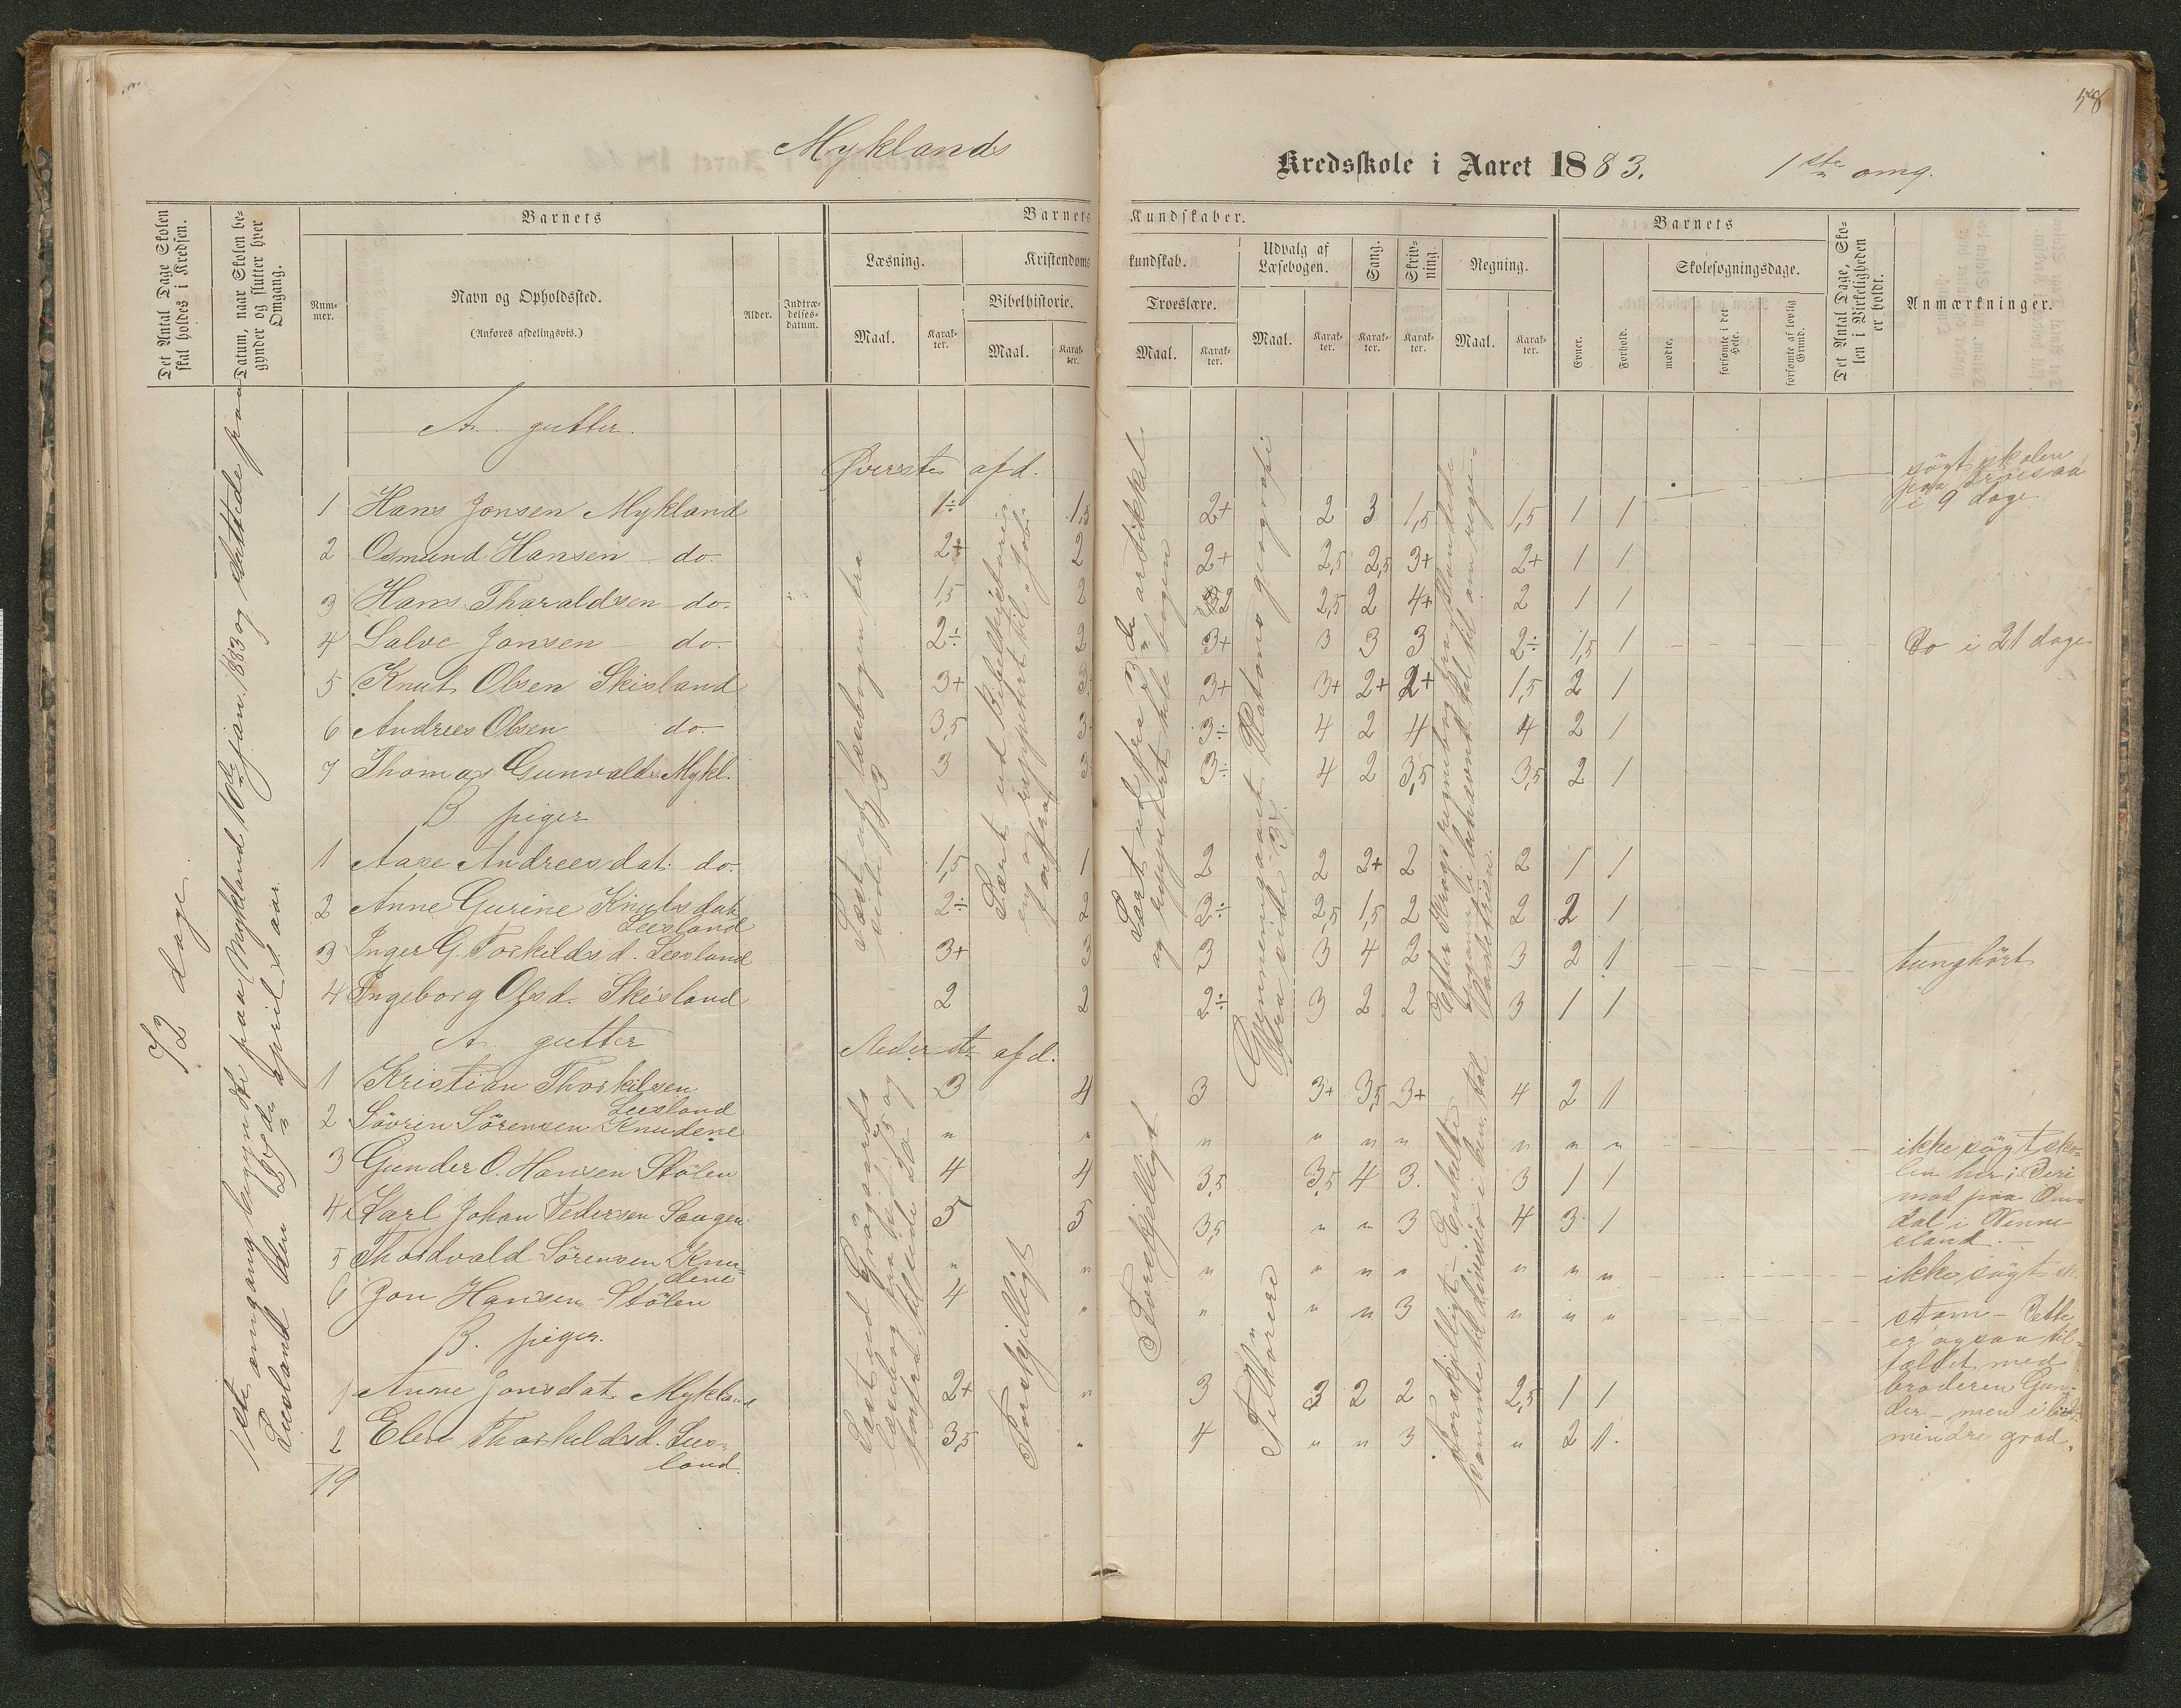 58
Myklands Kredsskole i Aaret 1883. 1ste omg.
Det Antal Dage Skolen skal holdes i Kredsen.
Datum, naar Skolen begynder og slutter hver Omgang.
Barnets
Nummer.
Navn og Opholdssted.
(Anføres afdelingsvis.)
Alder.
Indtrædelsesdatum.
Barnets Kundskaber.
Læsning.
Maal.
Karakter.
Kristendomskundskab.
Bibelhistorie.
Maal.
Karakter.
Troeslære.
Maal.
Karakter.
Udvalg af Læsebogen.
Maal.
Karakter.
Sang.
Karakter.
Skrivning.
Karakter.
Regning.
Maal.
Karakter.
Barnets
Evner.
Forhold.
Skolesøgningsdage.
mødte.
forsømte i det Hele.
forsømte af lovlig Grund.
Det Antal Dage, Skolen i Virkeligheden er holdt.
Anmærkninger.
72 dage
1ste omgang begyndte paa Mykland 10de jan. 1883 og sluttede paa
Leesland den april s. aar.
A. gutter.
Øverste afd.
Læst ud læsebogen fra
side
Lært ud Bibelhistorie
og reppetert til "Job"
Lært ud fra 3die artikkel
og reppetert hele bogen
Gjennemgaaet Natons geografi
fra side
søgt skolen
paa
i 9 dage
1 Hans Jonsen Mykland 1÷ 1,5 2+ 2 3 1,5 1,5 1 1
2 Osmund Hansen do. 2+ 2 2+ 2,5 2,5 3+ 2+ 1 1
3 Hans Tharaldsen do. 1,5 2 2 2,5 2 4+ 2 1 1
4 Salve Jonsen do. 2÷ 2 3+ 3 3 3 2÷ 1,5 1 Do i 21 dage
5 Knut Olsen Skisland 3+ 3 3+ 3+ 2+ 2+ 1,5 2 1
6 Andrees Olsen do. 3,5 3 3÷ 4 2 4 4 2 1
7 Thomas Gunvalds. Mykl. 3 3 3÷ 4 2 3,5 3,5 2 1
B piger
1 Aase Andreesdat. do. 1,5 1 2 2 2+ 2 2 1 1
2 Anne Gurine Knutsdat. Leesland 2÷ 2 2÷ 2,5 1,5 2 2 2 1
3 Inger G. Torkildsd. Leesland 3+ 3 3 3 4 2 3 2 1 tunghørt
4 Ingeborg Olsd. Skisland 2 2 2÷ 3 2 2 3 1 1
A. gutter
Nederste afd.
Forskjelligt
Forskjelligt
Tilhørere
1 Kristian Thorkilsen Leesland 3 4 3 3+ 3,5 3+ 4 2 1
2 Sövrin Sörensen Knudene " " " " " " " " "
3 Gunder O. Hansen Stölen 4 4 3,5 3,5 4 3. 3 1 1
4 Karl Johan Pedersen Saagen 5 5 3,5 " " 3 4 3 1
5 Thordvald Sörensen Knudene " " " " " " " " "
6 Jon Hansen Stölen 4 " " " " 3 " " "
ikke søgt skolen
her; Deri
mod paa
dal i Venne
sland. —
ikke søgt sk.
stam — Dette
er ogsaa til-
fældet med
broderen Gun-
der — men i
mindre grad.
B. piger.
1 Anne Jonsdat. Mykland 2+ " 3 3 2 2 2,5 1 1
2 Elen Thorkildsd. Leesland. 3,5 " 4 " " 3 " 2 1.
19